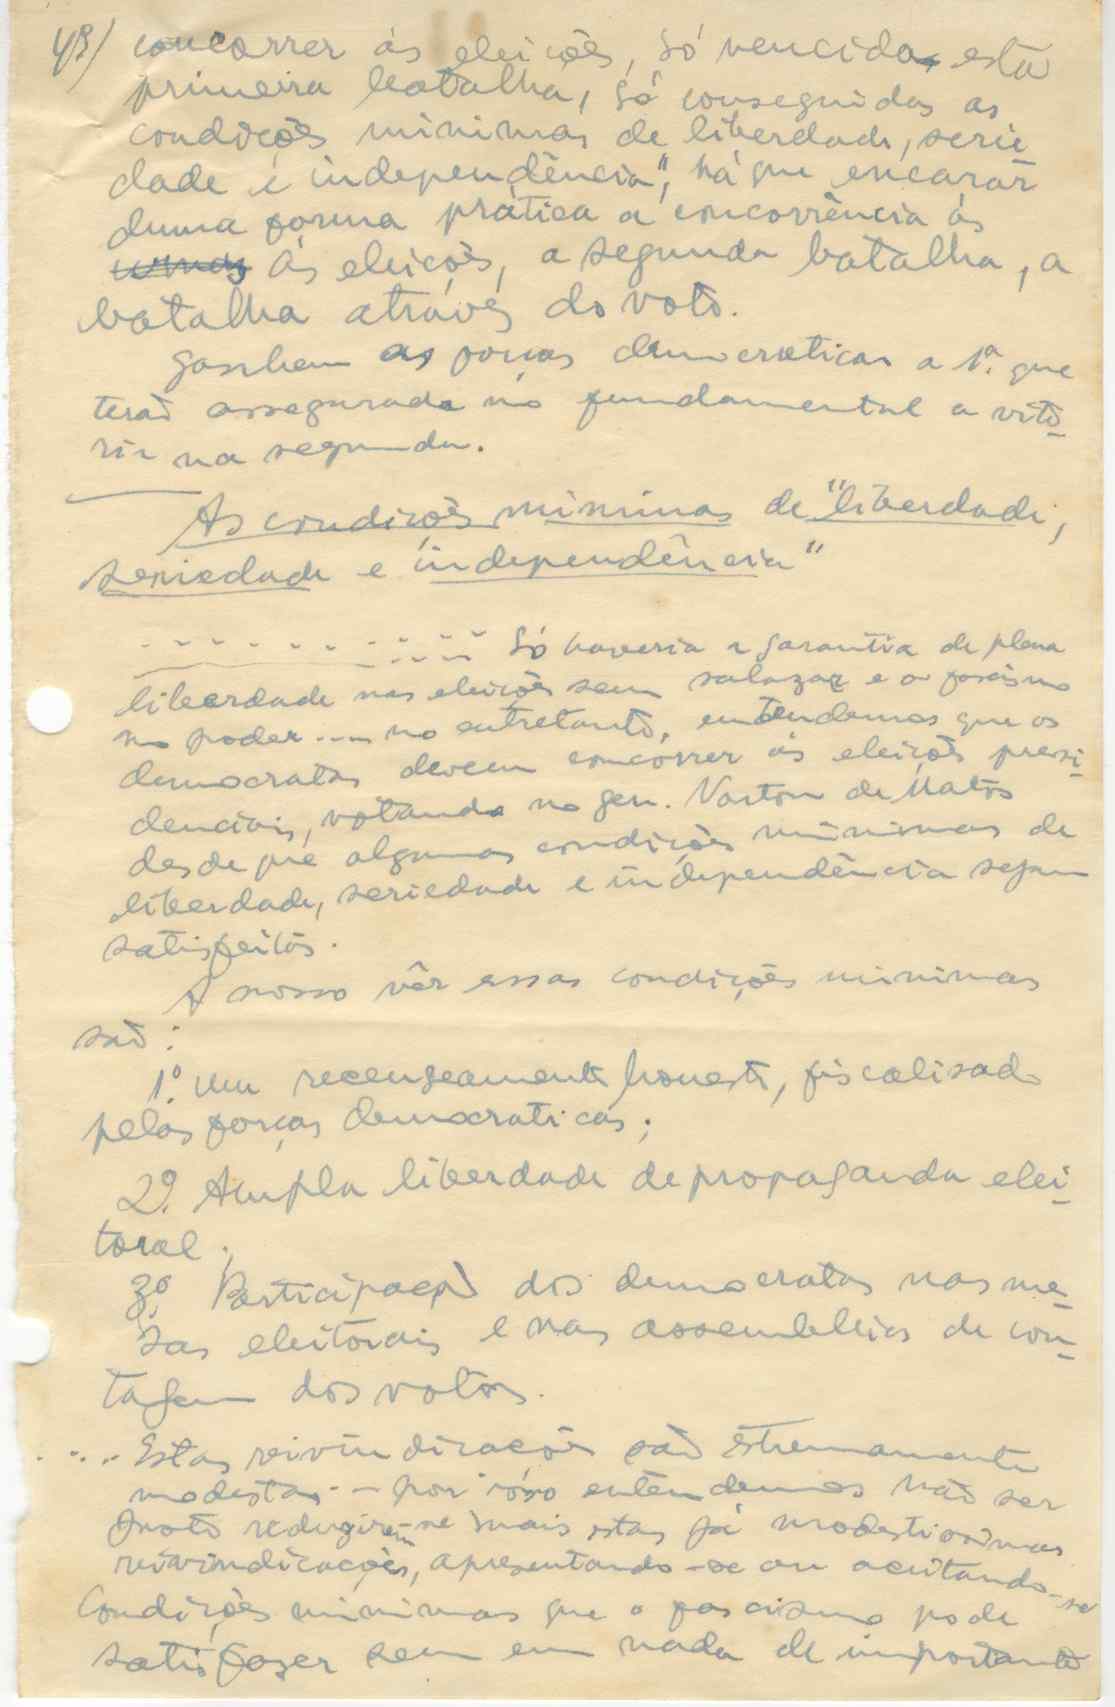 4º/ concorrer ás eleições, só vencida esta
primeira batalha, só conseguidas as
condições minimas de liberdade, serie
dade e independência", há que encarar
duma forma prática a concorrência ás
ás eleições, a segunda batalha, a
batalha através do voto.
Ganhem as forças democraticas a 1ª. que
terão assegurada no fundamental a vitó-
ria na segunda.
As condições minimas de "liberdade,
seriedade e independência"
. . . . . . . . . . . . . . Só haveria a garantia de plena
liberdade nas eleições sem salazar e o fascismo
no poder .... no entretanto, entendemos que os
democratas devem concorrer ás eleições presi-
denciais, votando no gen. Norton de Matos
desde que algumas condições minimas de
liberdade, seriedade e independência sejam
satisfeitas.
A nosso vêr essas condições minimas
são :
1º. Um recenseamento honesto, fiscalisado
pelas forças democraticas ;
2º. Ampla liberdade de propaganda elei-
toral ;
3º. Participação dos democratas nas me-
sas eleitorais e nas assembleias de con-
tagem dos votos.
. . . . Estas reivindicações são estremamente
modestas - - por isso entendemos não ser
justo reduzirem-se mais estas já modestissimas
reivindicações, apresentando-se ou aceitando-se
condições minimas que o fascismo pode
satisfazer sem em nada de importante